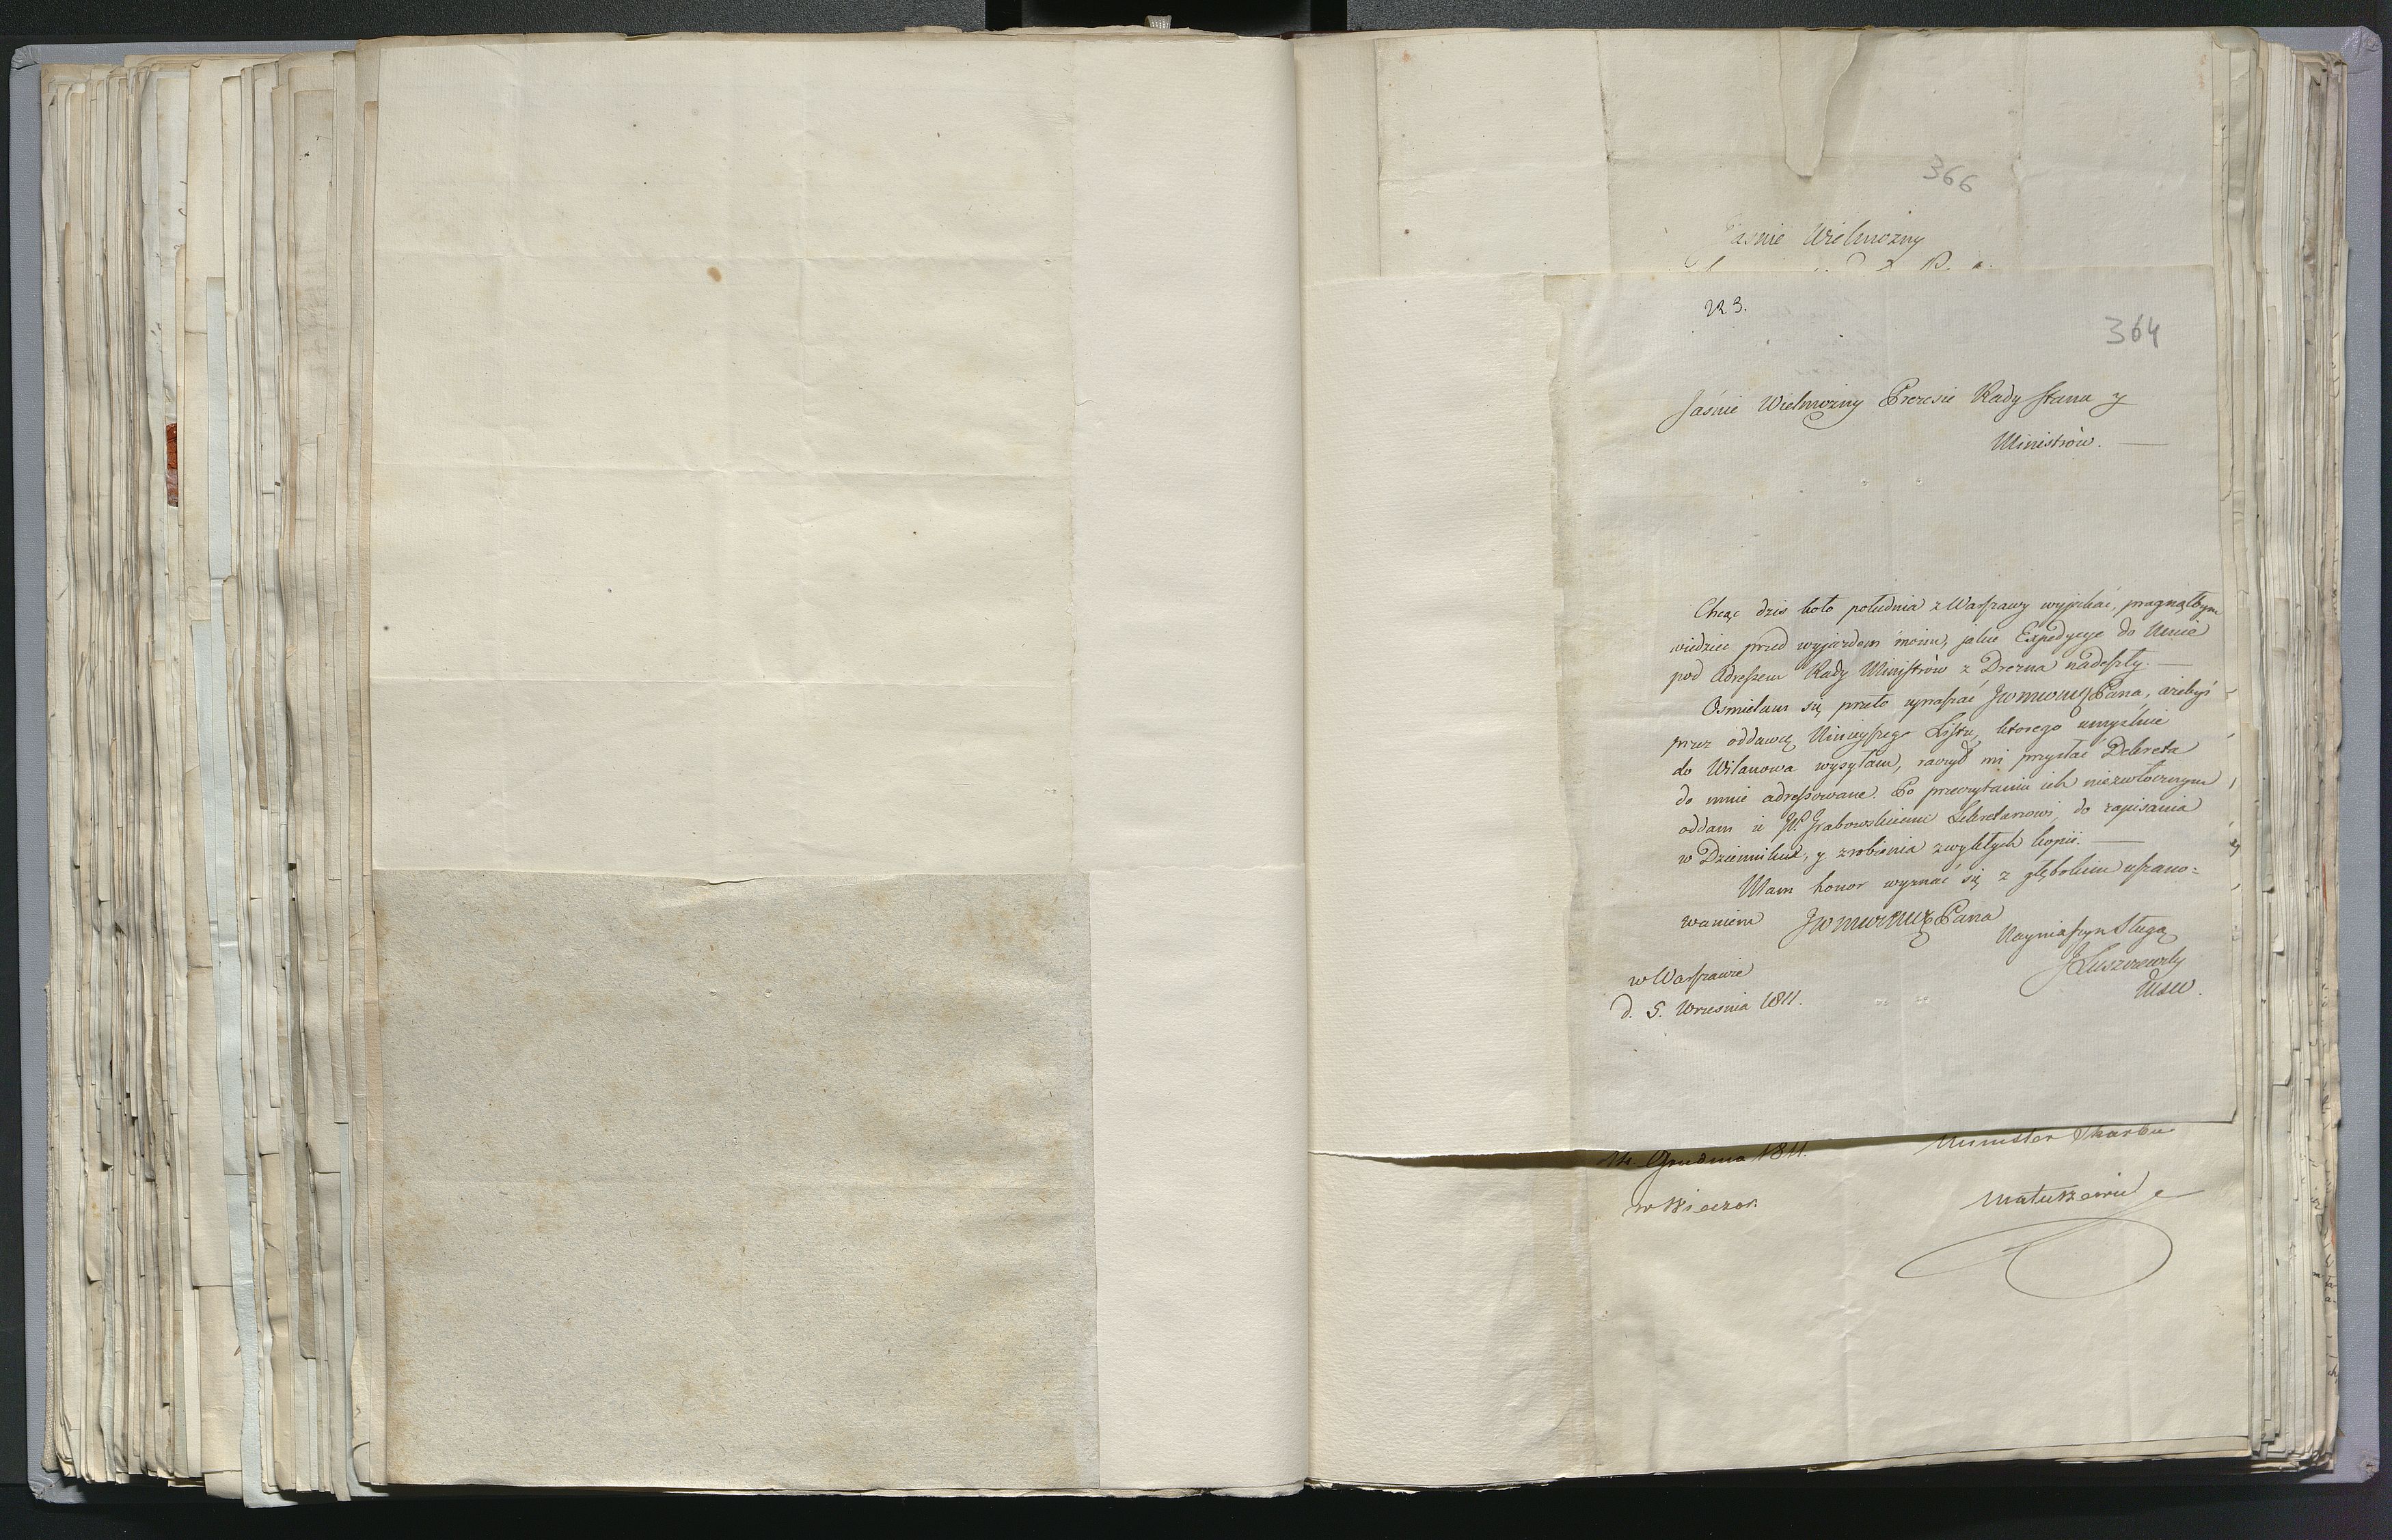 366
Jasnie Wielmozny
223.
364
Jaśnie Wielmożny Prezesie Rady Stanu y
Ministrów.
Chcąc dziś koło południa z Warszawy wyjechać, pragnąłbym
wiedzieć przed wyjazdem moim, jakie Expedycye do Mnie
pod Adressem Rady Ministrów z Drezna nadeszły.
Osmielam się przeto upraszać JWMWMg Pana, ażebyś
przez oddawcę Ninieyszego Listu, ktorego umyślnie
do Wilanowa wysyłam, raczył mi przysłać Dekreta
do mnie adressowane. Po przeczytaniu ich niezwłocznym
oddam je JP. Grabowskiemu Sekretarzowi, do zapisania
w Dzienniku, y zrobienia zwykłych kopii.
Mam honor wyznać się z głębokim uszano=
waniem JWMWMg Pana
Nayniższym Sługą
JŁuszczewsky
MSW.
w Warszawie
d. 5. Wrzesnia 1811.
14. Grudnia 1811.
Minister Skarbu
w Wieczor
Matuszewic